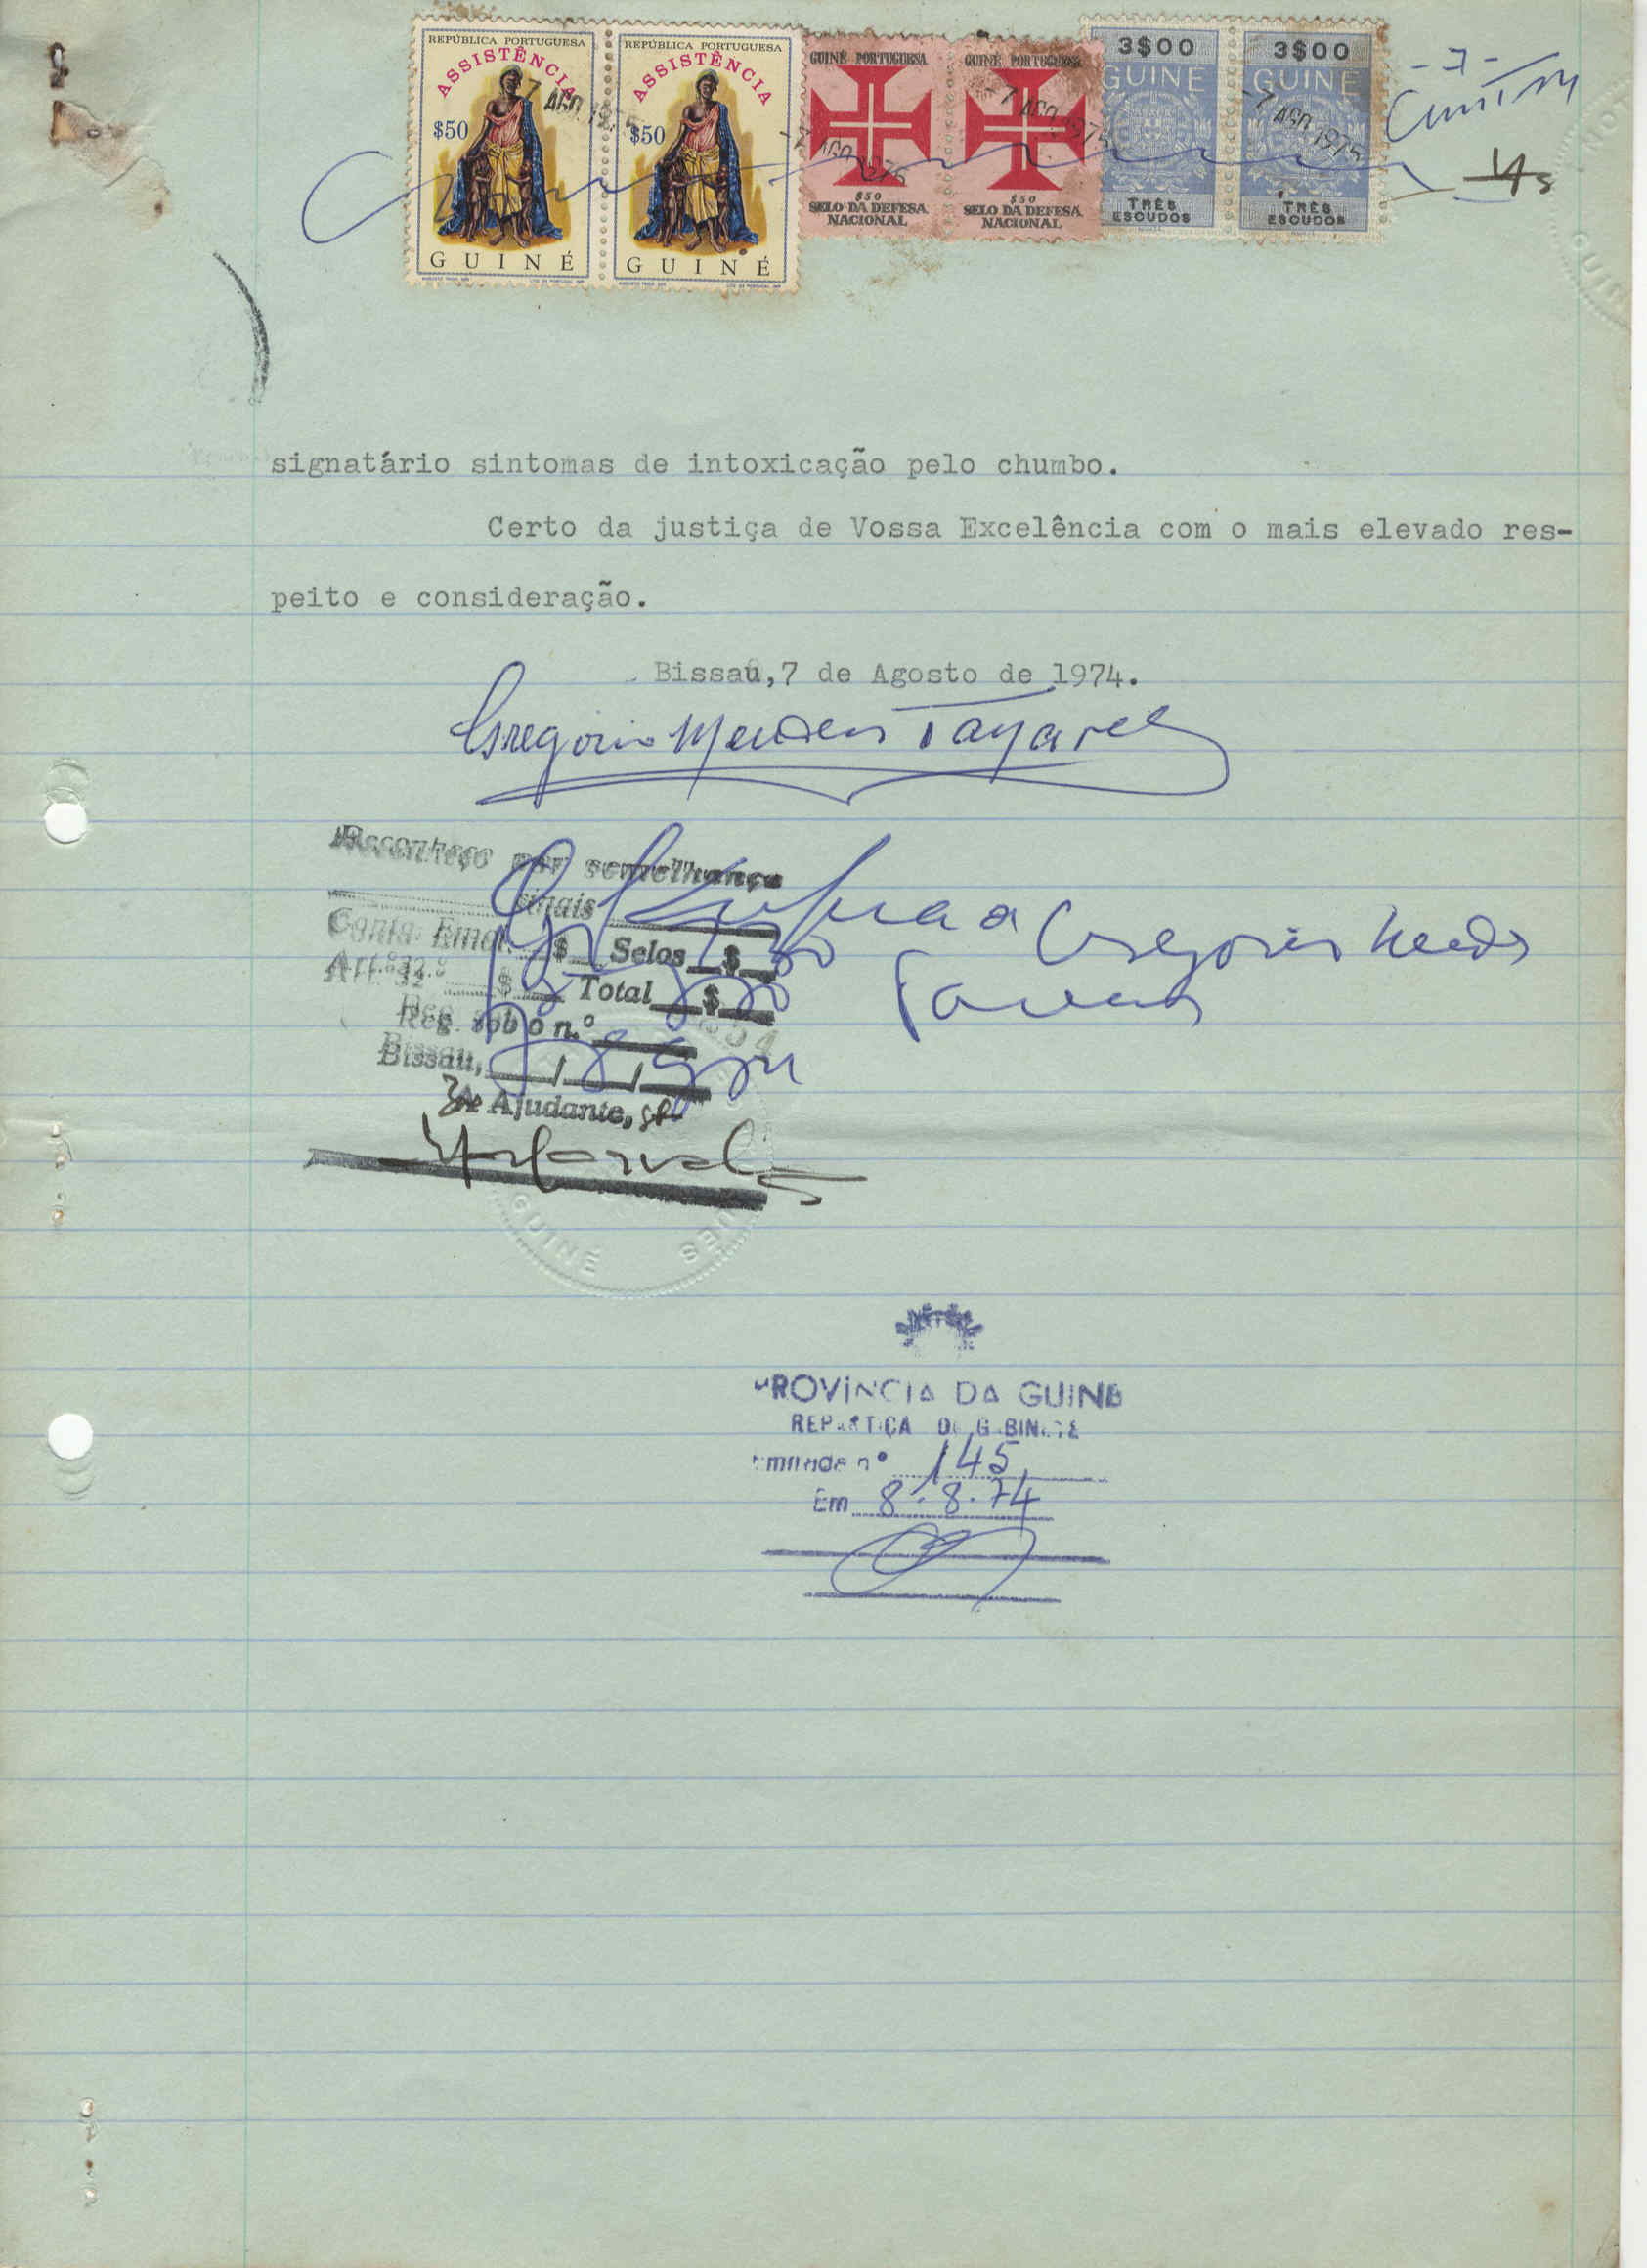 REPÚBLICA PORTUGUESA
ASSISTÊNCIA
$50
GUINÉ
REPÚBLICA PORTUGUESA
ASSISTÊNCIA
$50
GUINÉ
GUINÉ PORTUGUESA
$50
SELO DA DEFESA
NACIONAL
GUINÉ PORTUGUESA
$50
SELO DA DEFESA
NACIONAL
3$00
GUINÉ
TRÊS
ESCUDOS
3$00
GUINÉ
TRÊS
ESCUDOS
-7-
signatário sintomas de intoxicação pelo chumbo.
Certo da justiça de Vossa Excelência com o mais elevado res-
peito e consideração.
Bissau,7 de Agosto de 1974.
Gregorio Mendes Tavares
Reconheço por semelhança
sinais
Conta: Emol. $ Selos $
Art.º 32.º $ Total $
Reg. sob o n.º
Bissau, / /
Ajudante,
GUINÉ
PROVÍNCIA DA GUINÉ
REPARTIÇÃ DE GABINETE
Entrada nº 145
Em 8.8.74